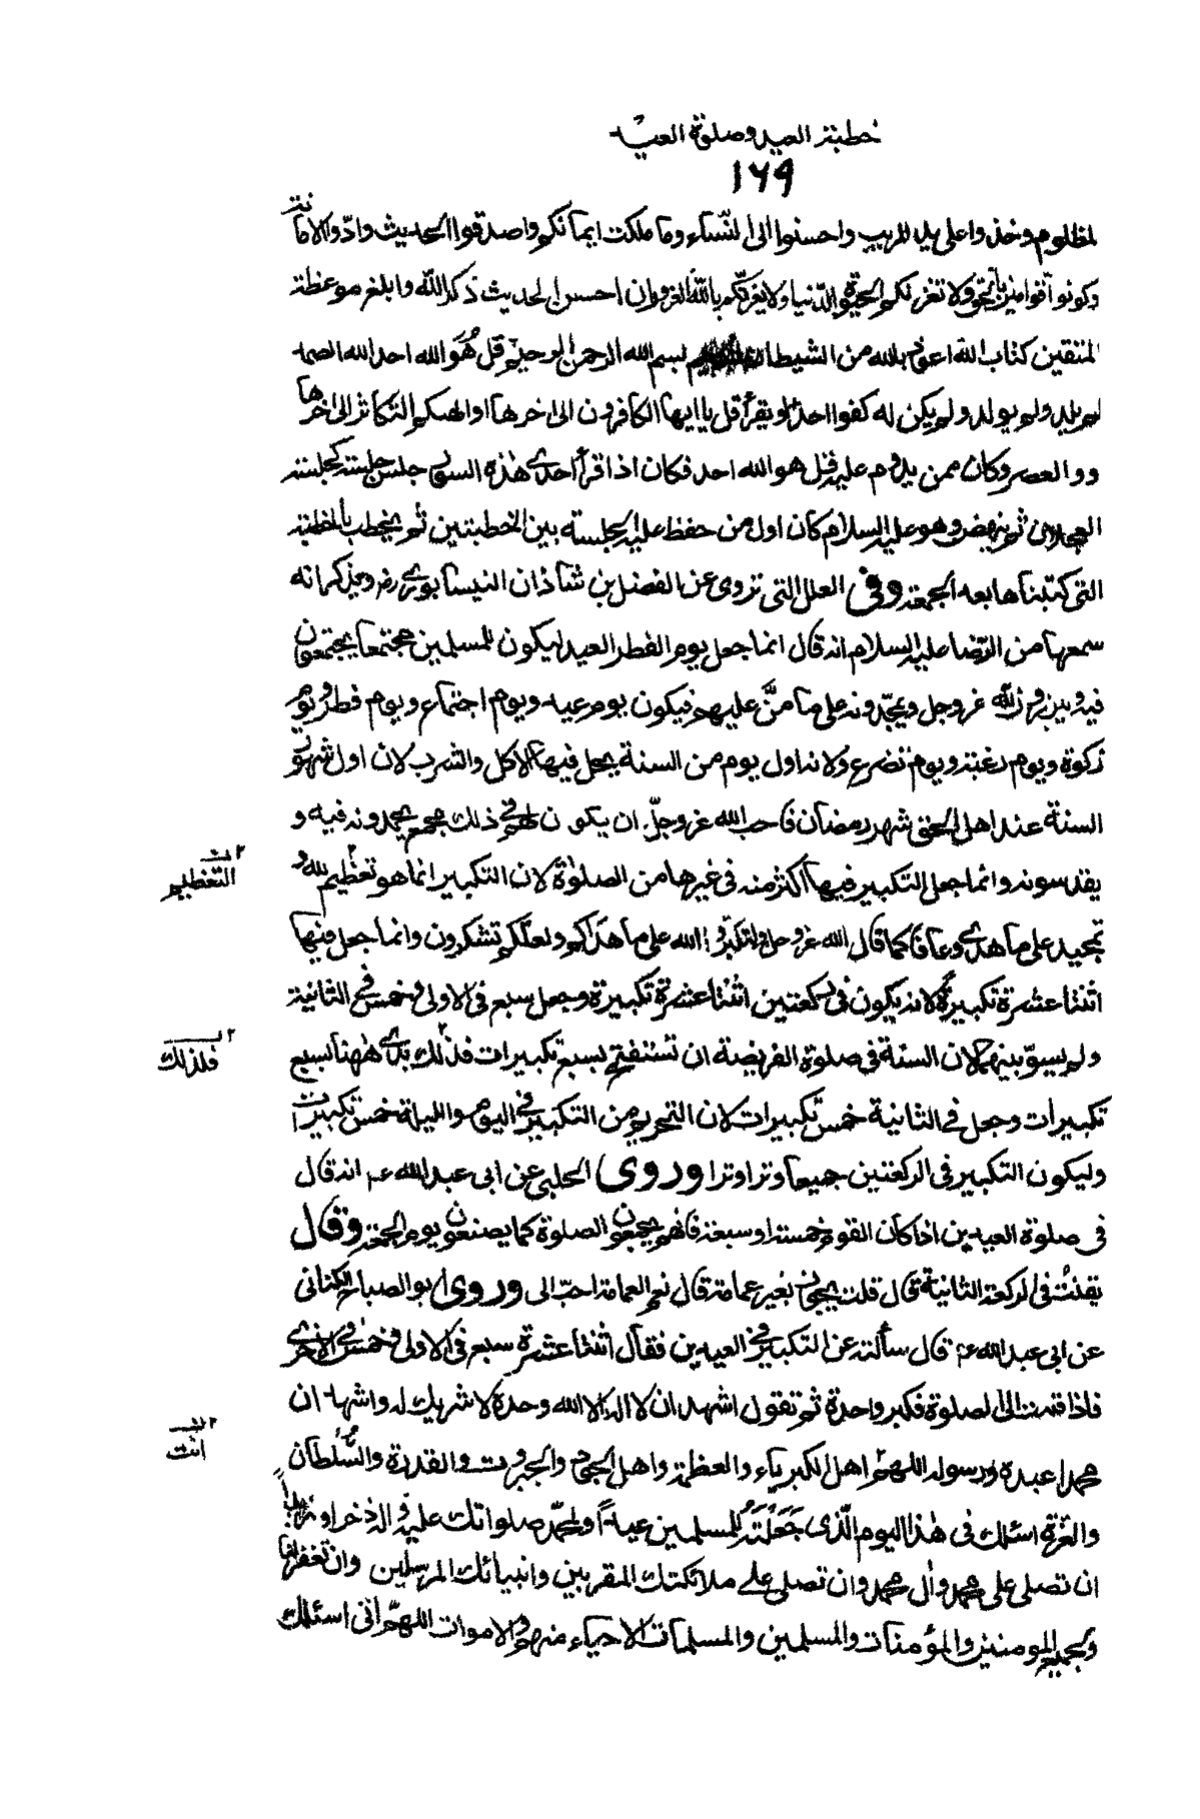 خطبة العيد وصلوة العيد
١٦٩
المظلوم وخذوا على يد المريب واحسنوا الى النساء وما ملكت ايمانكم واصدقوا الحديث وادّوا الامانة
وكونوا قوامين بالحق ولا تغرنكم الحيوة الدنيا ولا يغرنكم بالله الغرور ان احسن الحديث ذكر الله وابلغ موعظة
المتقين كتاب الله اعوذ بالله من الشيطان الرجيم بسم الله الرحمن الرحيم قل هُوَ الله احد الله الصمد
لم يلد ولم يولد ولم يكن له كفوا احد او يقرأ قل يا ايها الكافرون الى اخرها او الهيكم التكاثر الى اخرها
و والعصر وكان ممن يدوم عليه قل هو الله احد فكان اذا قرأ احدى هذه السور جلس جلسة كجلسة
العجلان ثم ينهض وهو عليه السلام كان اول من حفظ عليه الجلسة بين الخطبتين ثم يخطب بالخطبة
التى كتبناها بعد الجمعة وفى العلل التى تروى عن الفضل بن شاذان النيسابورى رض ويذكر انه
سمعها من الرّضا عليه السلام انه قال انما جعل يوم الفطر العيد ليكون للمسلمين مجتمعا يجتمعون
فيه ويبرزون لله عز وجل ويمجّدونه على ما منَّ عليهم فيكون يوم عيد ويوم اجتماع ويوم فطر ويوم
زكوة ويوم رغبة ويوم تضرع ولانه اول يوم من السنة يحل فيها الاكل والشرب لان اول شهور
السنة عند اهل الحق شهر رمضان فاحب الله عز وجلّ ان يكون لهم فى ذلك مجمع يحمدونه فيه و
يقدسونه وانما جعل التكبير فيها اكثر منه فى غيرها من الصلوة لان التكبير انما هو تعظيم لله و
التعظيم
تمجيد على ما هدى وعافا كما قال الله عز وجل ولتكبّروا الله على ما هداكم ولعلّكم تشكرون وانما جعل فيها
اثنتا عشرة تكبيرة لانه يكون فى ركعتين اثنتا عشرة تكبيرة وجعل سبع فى الاولى وخمس فى الثانية
ولم يسوّ بينهما لان السنة فى صلوة الفريضة ان تستفتح بسبع تكبيرات فذلك بدئ ههنا بسبع
فلذلك
تكبيرات وجعل فى الثانية خمس تكبيرات لان التحريم من التكبير فى اليوم والليلة خمس تكبيرات
وليكون التكبير فى الركعتين جميعا وترا وترا وروى الحلبى عن ابى عبد الله ع انه قال
فى صلوة العيدين اذا كان القوم خمسة او سبعة فانهم يجمعون الصلوة كما يصنعون يوم الجمعة وقال
يقنت فى الركعة الثانية قال قلت يجوز بغير عمامة قال نعم العمامة احبّ الى وروى ابو الصباح الكنانى
عن ابى عبد الله ع قال سألته عن التكبير فى العيدين فقال اثنتا عشرة سبع فى الاولى وخمس فى الاخرى
فاذا قمت الى الصلوة فكبر واحدة ثم تقول اشهد ان لا اله الا الله وحده لا شريك له واشهد ان
محمدا عبده ورسوله اللهم اهل الكبرياء والعظمة واهل الجود والجبروت والقدرة والسُّلطان
انت
والعزة اسئلك فى هذا اليوم الّذى جَعَلْتَهُ للمسلمين عيداً ولمحمّد صلواتك عليه واله ذخرا ومزيداً
ان تصلى على محمد وال محمد وان تصلى على ملائكتك المقربين وانبيائك المرسلين وان تغفر لنا
ولجميع المومنين والمؤمنات والمسلمين والمسلمات الاحياء منهم والاموات اللهمّ انى اسئلك